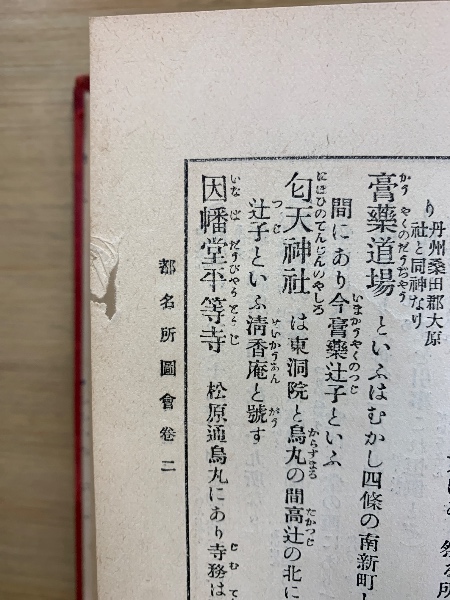 り
丹州桑田郡大原
社と同神なり
祭る所
かうやくのだうぢやう
膏藥道場 といふはむかし四條の南新町
いまかうやくのつじ
間にあり今膏藥辻子といふ
にほひのてんじんのやしろ からすまる たかつじ
匂天神社 は東洞院と烏丸の間高辻の北に
つじ せいかうあん がう
辻子といふ淸香庵と號す
いなばだうびやうどうじ じむ
因幡堂平等寺 松原通烏丸にあり寺務は
都名所圖會卷二